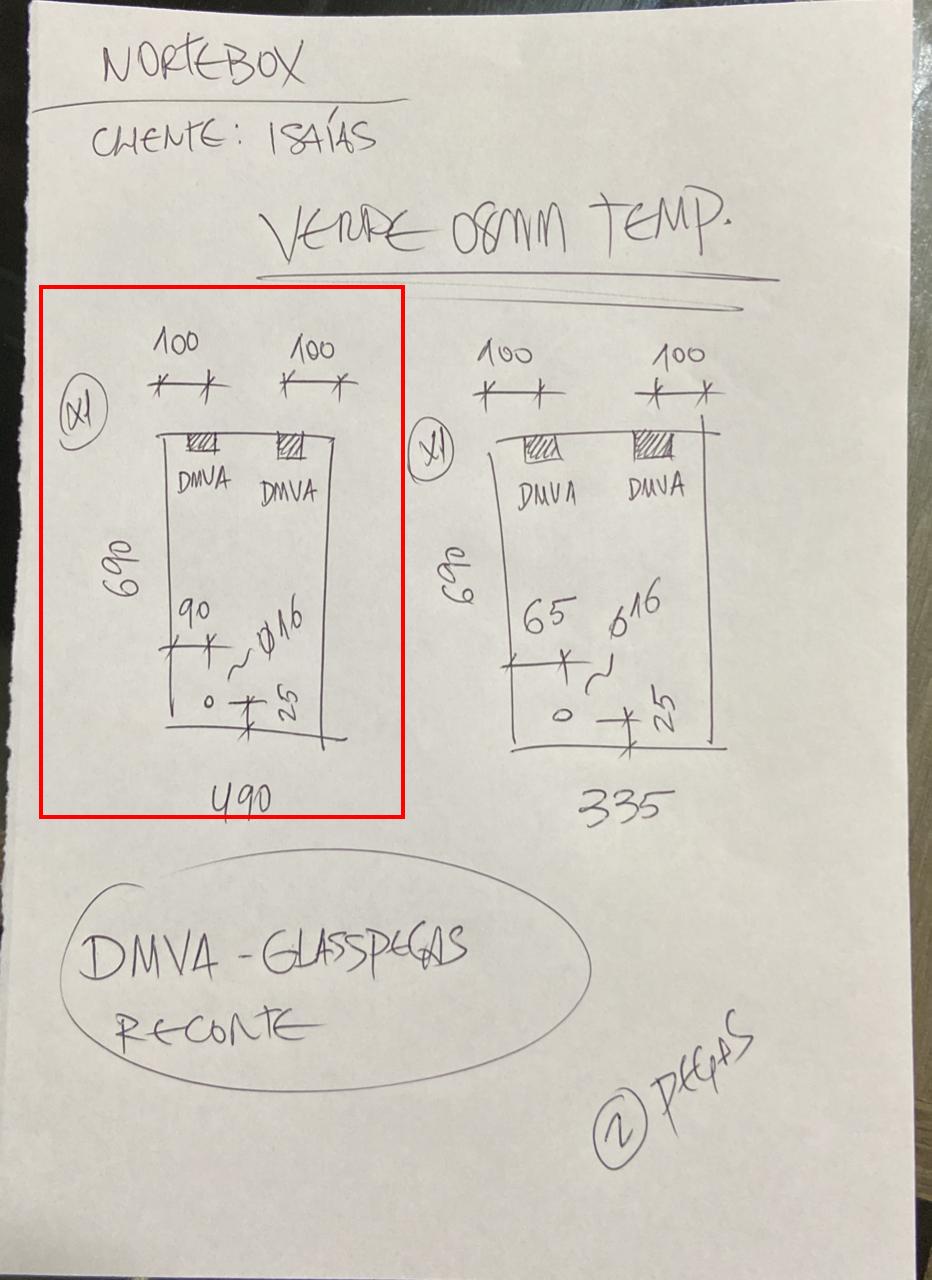 NORTEBOX
CLIENTE: ISAÍAS
VERDE 08MM TEMP.
100 100
X1
DMVA DMVA
690
90 Ø16
25
490
100 100
X1
DMVA DMVA
690
65 Ø16
25
335
DMVA - GLASSPEÇAS
RECORTE
2 PEÇAS